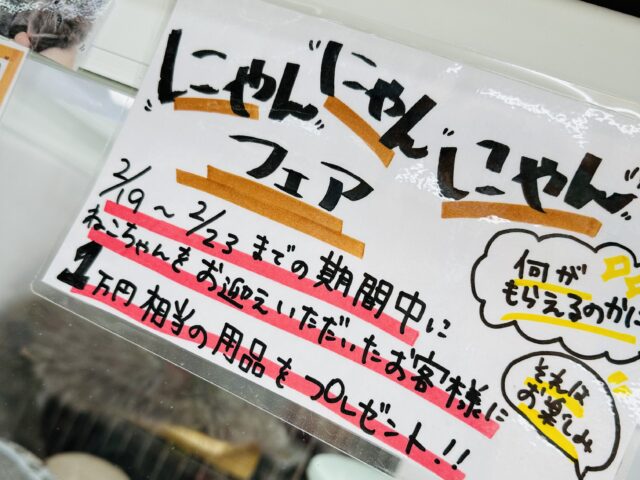 にゃん にゃん にゃん
フェア
2/19～2/23までの期間中に
ねこちゃんをお迎えいただいたお客様に
1万円相当の用品をプレゼント!!
何が
もらえるのかは
それは
お楽しみ